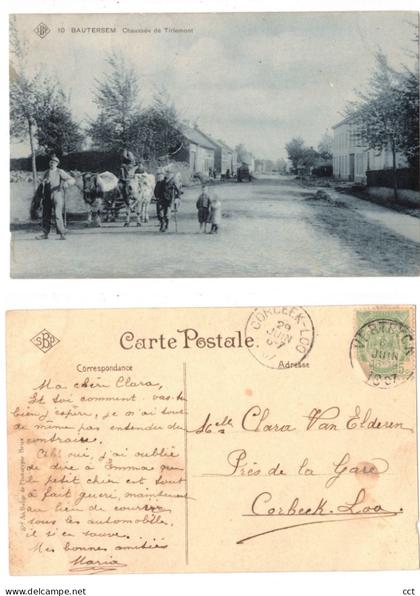 SBP
10 BAUTERSEM Chaussée de Tirlemont
SBP
Carte Postale.
Correspondance
Adresse
CORBEEK-LOO
29
JUIN
07
VERTRYCK
JUIN
1907
5
Ma chère Clara,
Et toi comment vas-tu
bien j'espère, je n'ai tout
de même pas entendu du
contraire.
Oh! oui, j'ai oublié
de dire à Emma que
le petit chien est tout
à fait guéri, maintenant
au lieu de courir
sous les automobiles,
il se sauve.
Mes bonnes amitiés
Maria
Melle Clara Van Elderen
Près de la Gare
Corbeek-Loo
Sté An. Belge de Phototypie Brux
delcampe.net
Pati